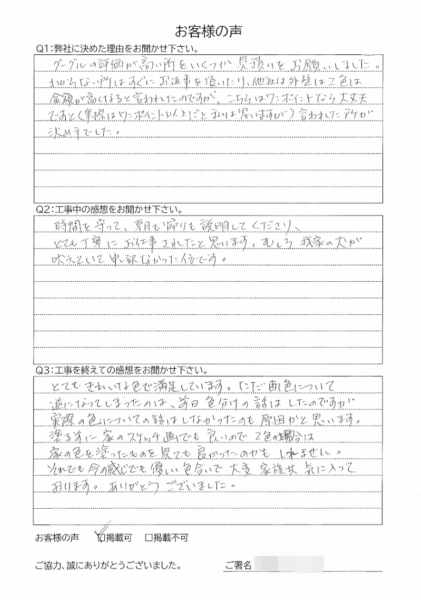 お客様の声
Q1：弊社に決めた理由をお聞かせ下さい。
グーグルの評価が高い所をいくつか見積りをお願いしました。
わからない所はすぐにお返事を頂いたり、他社は外壁は2色は
金額が高くなると言われたのですが、こちらはワンポイントなら大丈夫
ですよと(実際はワンポイント以上だと私は思いますが)言われました所が
決め手でした。
Q2：工事中の感想をお聞かせ下さい。
時間を守って、朝も帰りも説明してくださり、
とても丁寧にお仕事されたと思います。むしろ我家の犬が
吠えていて申訳なかった位です。
Q3：工事を終えての感想をお聞かせ下さい。
とてもきれいな色で満足しています。ただ配色について
逆になってしまったのは、前日色分けの話はしたのですが
実際の色についての話はしなかったのも原因かと思います。
塗る前に家のスケッチ画でも良いので2色の場合は
家の色を塗ったものを見ても良かったのかもしれません。
それでも今の感じでも優しい色合いで大変家族共気に入って
おります。ありがとうございました。
お客様の声 ☑掲載可 □掲載不可
ご協力、誠にありがとうございました。 ご署名